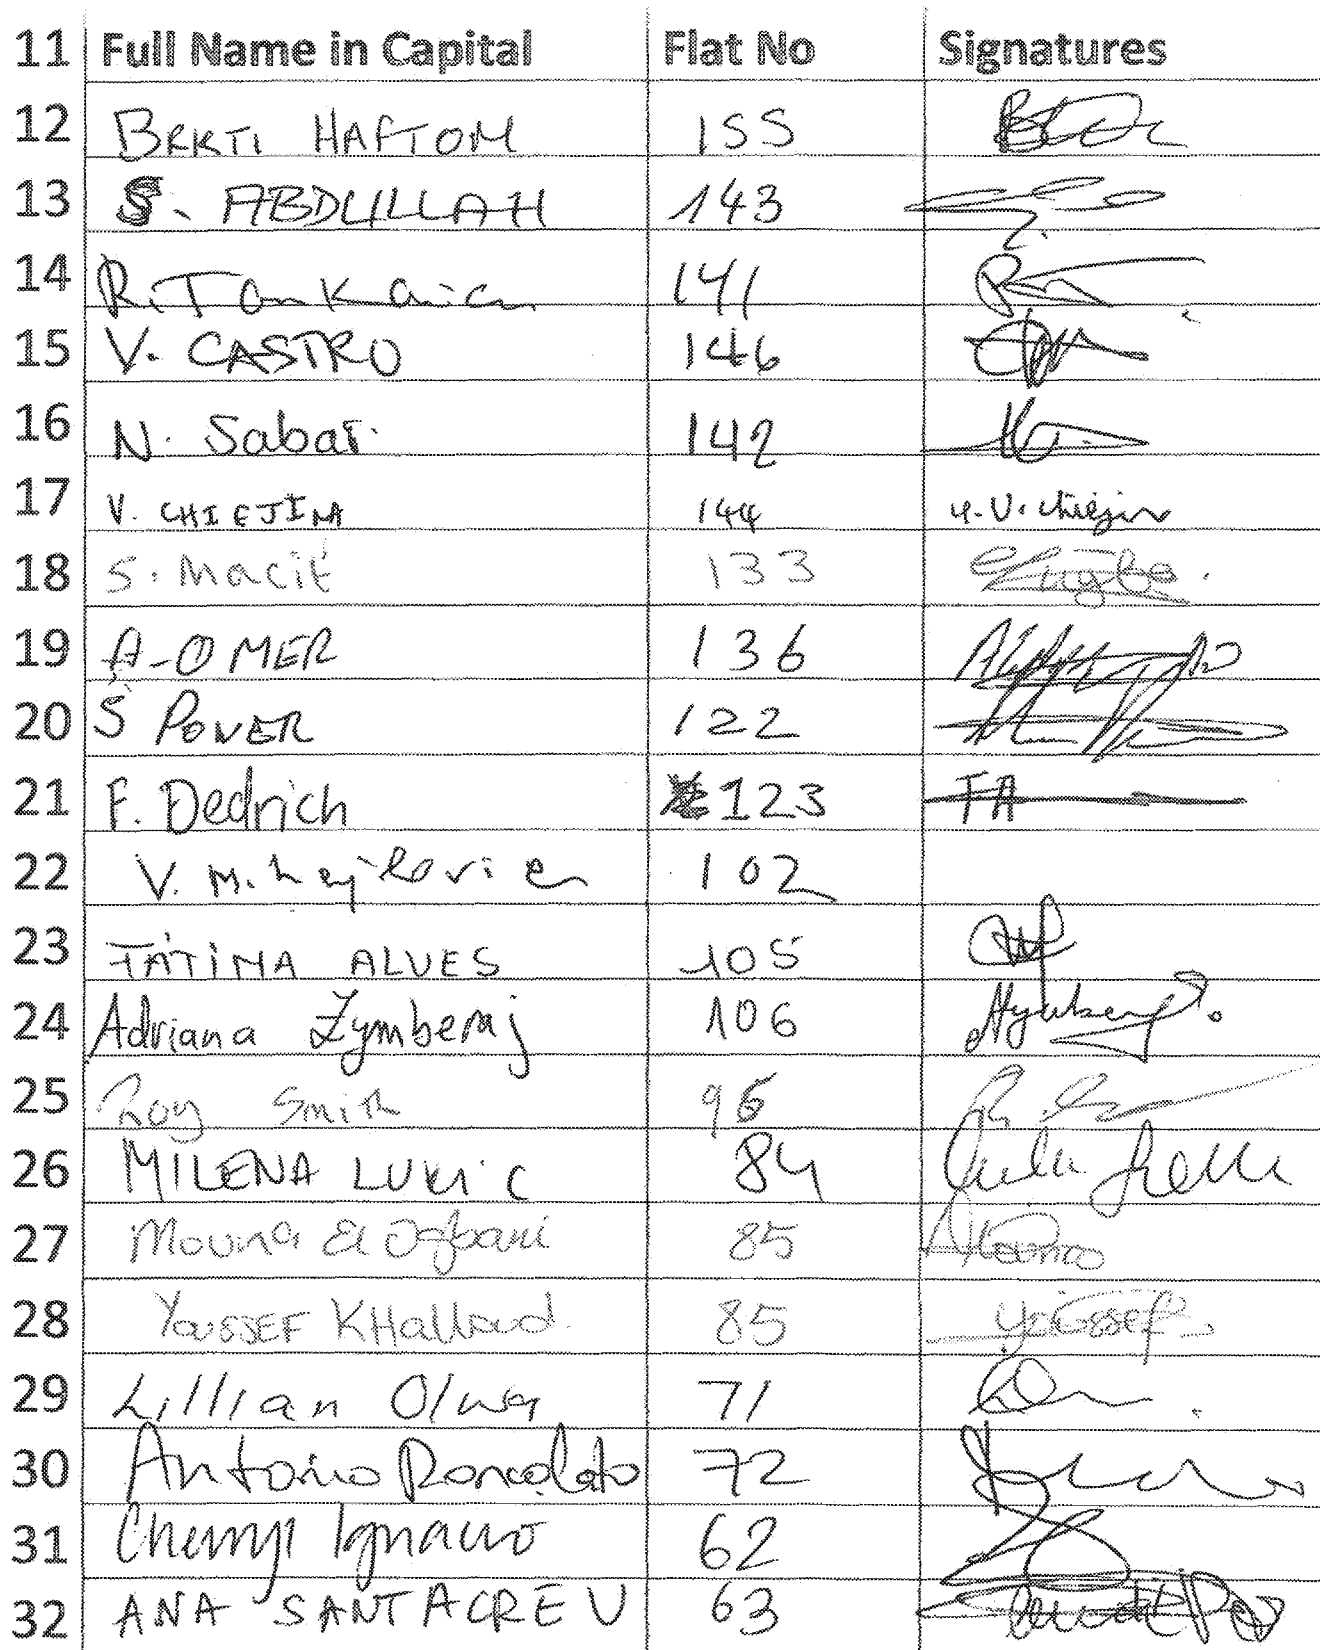 11 Full Name in Capital Flat No Signatures
12 BRKTI HAFTOM 155
13 S. ABDULLAH 143
14 R. 141
15 V. CASTRO 146
16 N. Sabar 142
17 V. CHIEJINA 144 V. Chiejina
18 S. Macit 133
19 A-OMER 136
20 S POWER 122
21 F. Dedrich 123 FA
22 V. Mihajlovic 102
23 FÁTIMA ALVES 105
24 Adriana Zymberaj 106
25 Roy Smith 96
26 MILENA LUKIC 84
27 Mouna El 85
28 YOUSSEF KHalloud 85 youssef
29 Lillian 71
30 Antonio Roncolato 72
31 Cherryl Ignacio 62
32 ANA SANTACREU 63